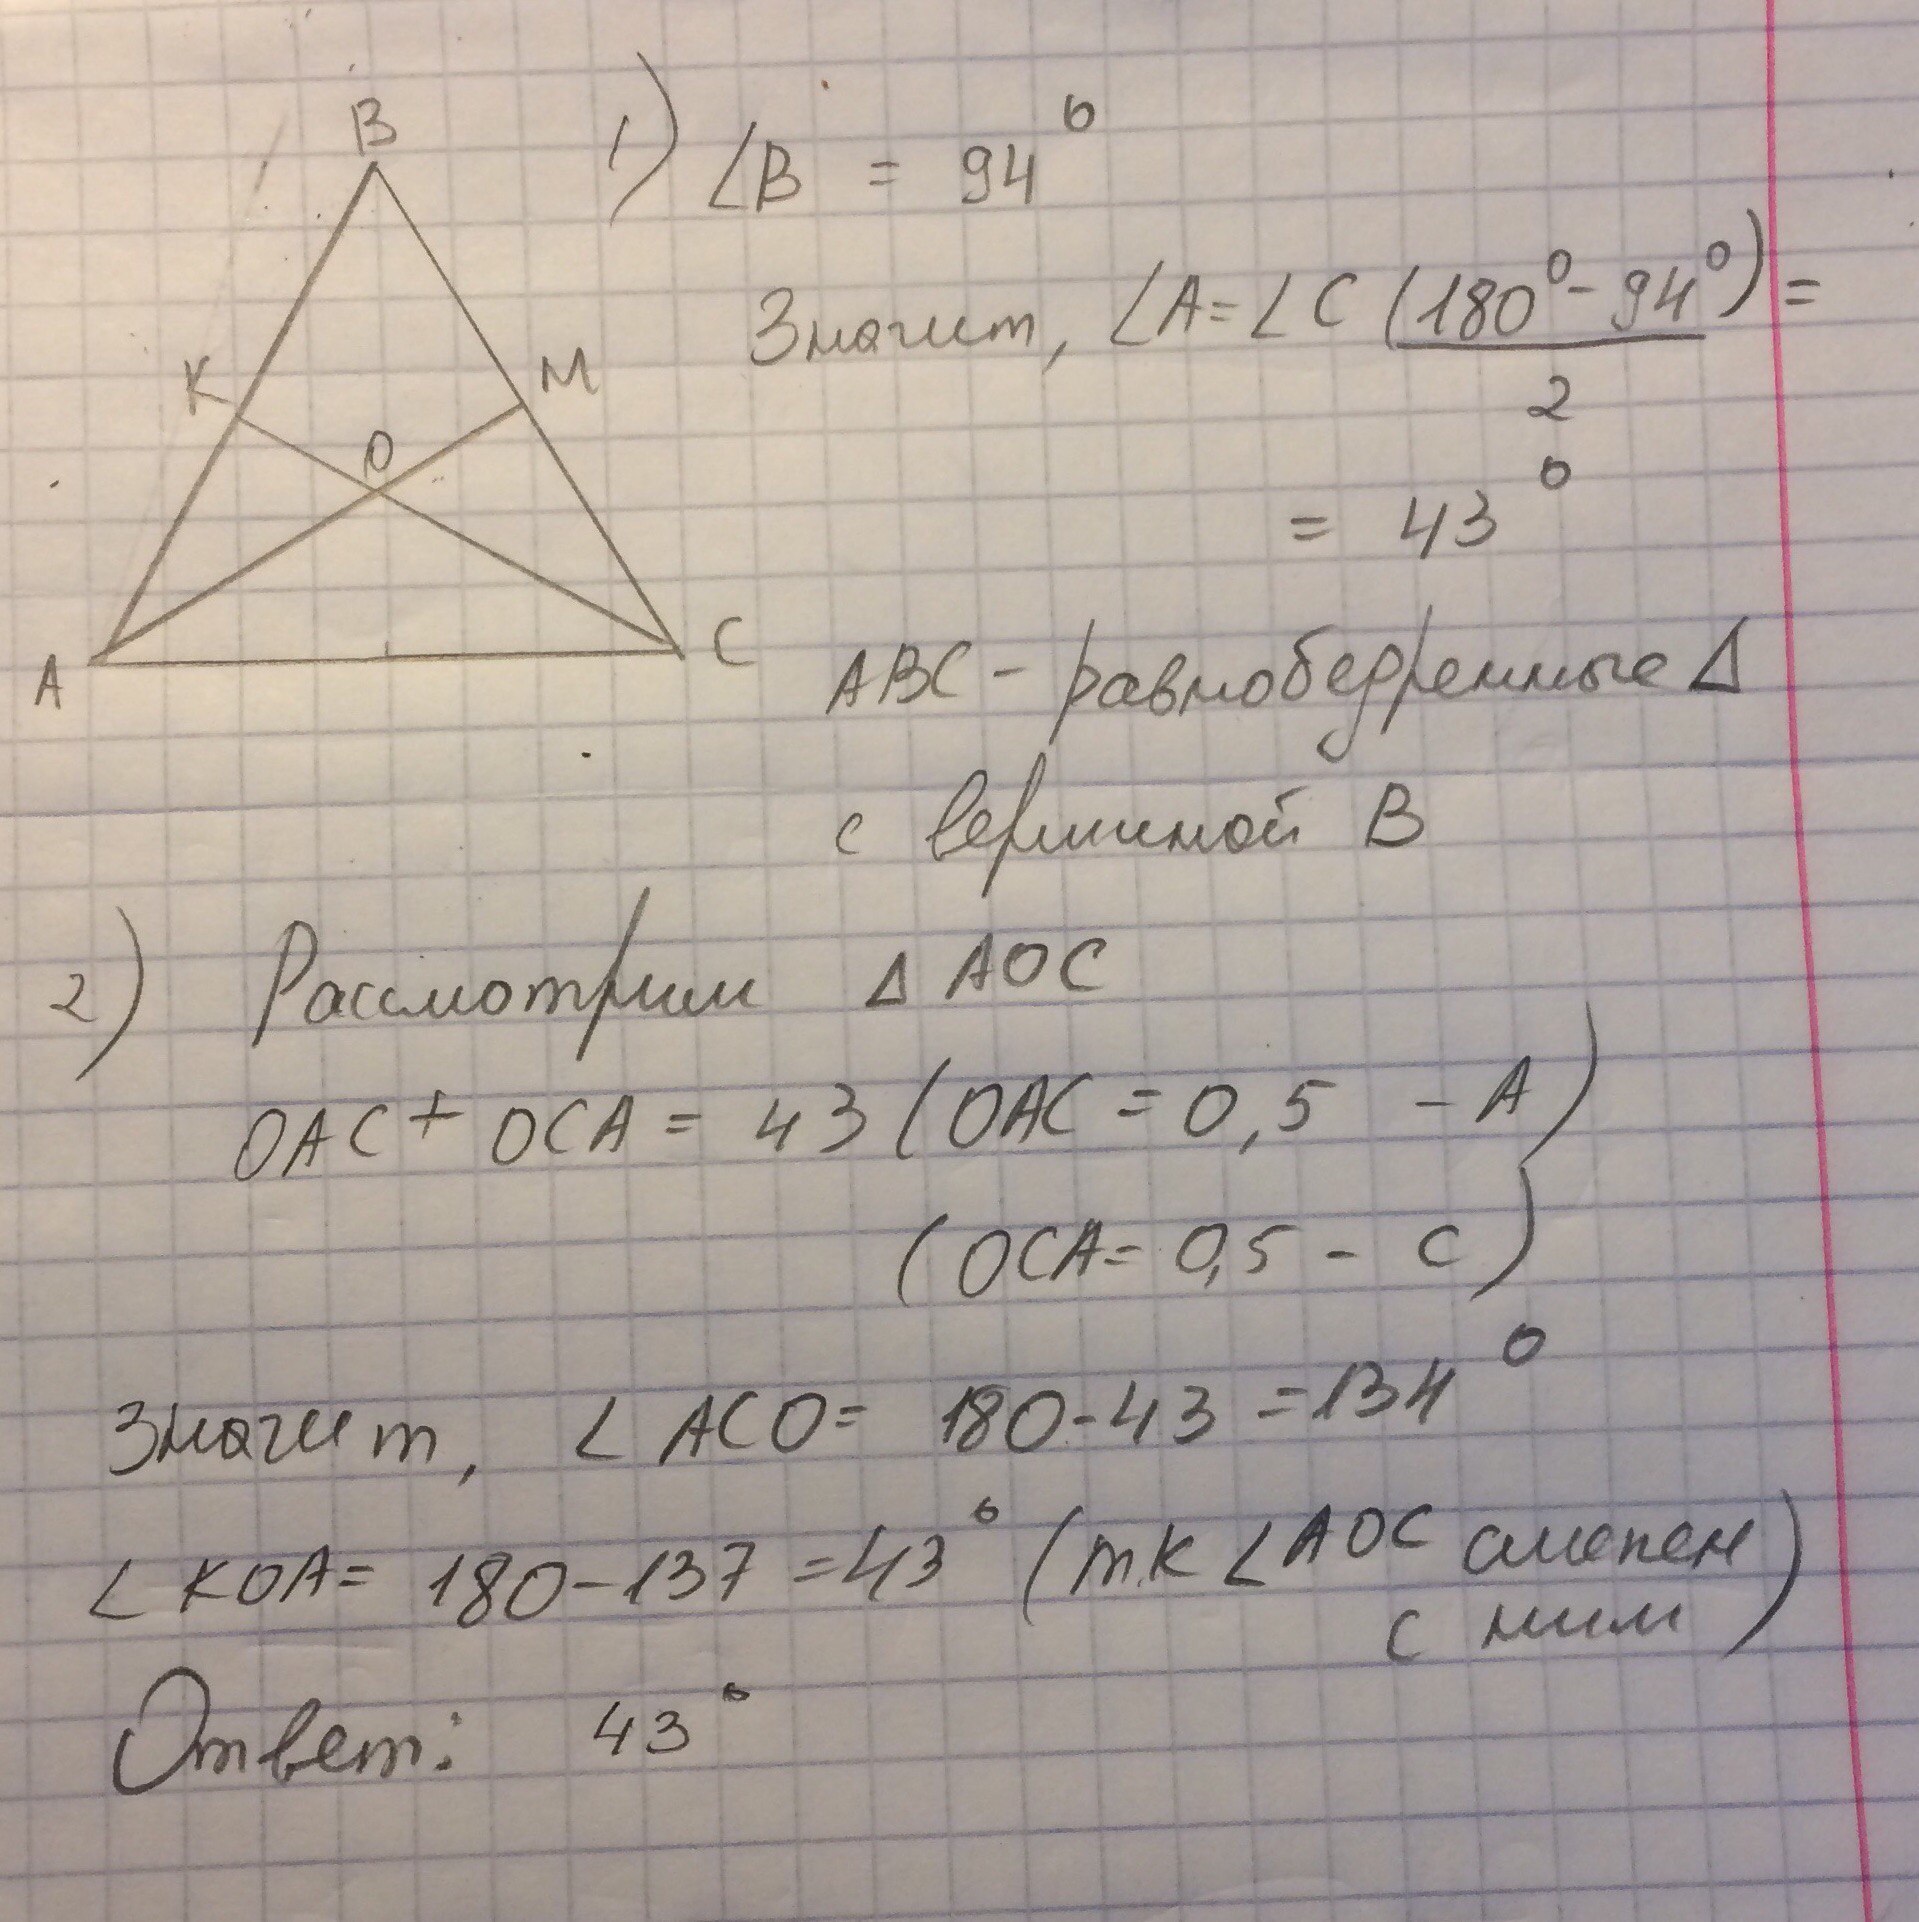 B
K
M
O
A
C
1) ∠B = 94°
Значит, ∠A = ∠C (180° - 94°) =
2
= 43°
ABC - равнобедренные Δ
с вершиной B
2) Рассмотрим Δ AOC
OAC + OCA = 43 (OAC = 0,5 - A)
(OCA = 0,5 - C)
Значит, ∠ACO = 180 - 43 = 134°
∠KOA = 180 - 137 = 43° (т.к ∠AOC смежен
с ним)
Ответ: 43°